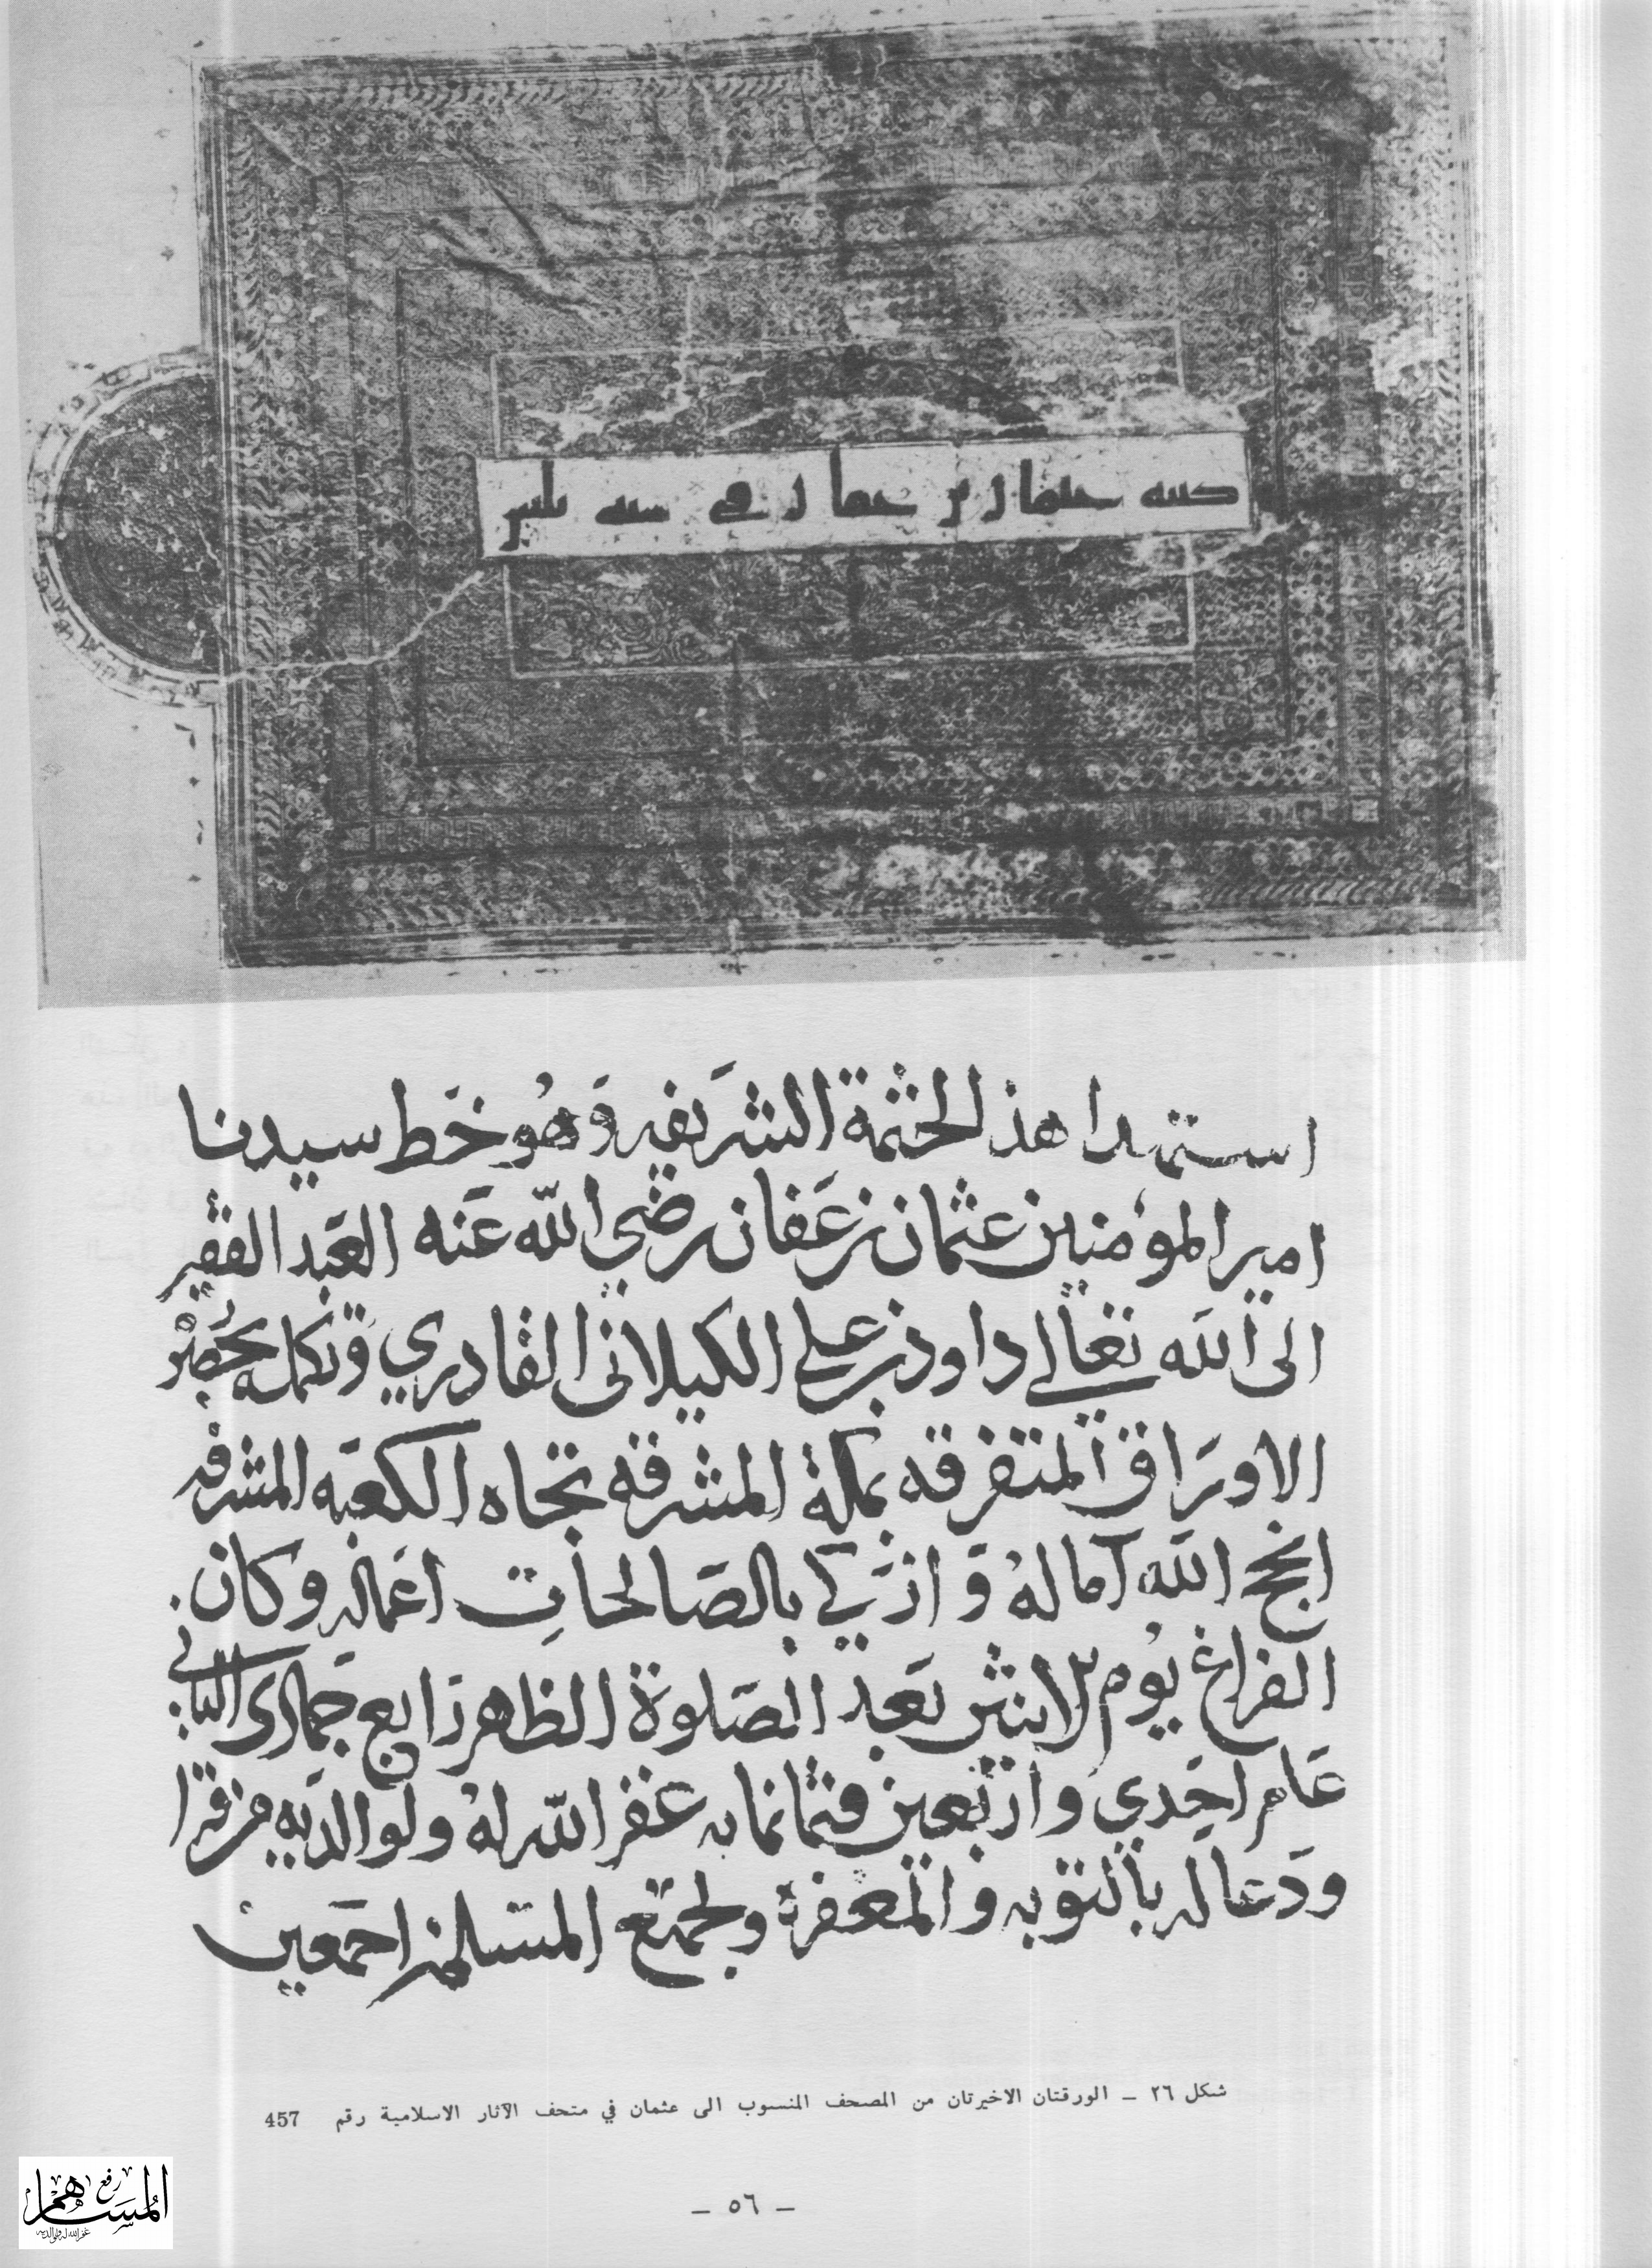 كتبه عثمان بن عفان في سنة ثلثين
استنهدا هذ الختمة الشريفه وهو خط سيدنا
امير المومنين عثمان بن عفان رضي الله عنه العبد الفقير
الى الله تعالى داود بن علي الكيلاني القادري وتكمله بحضر
الاوراق المتفرقه بمكة المشرفه تجاه الكعبه المشرفه
انجح الله آماله وازكى بالصالحات اعماله وكان
الفراغ يوم الاثنين بعد الصلوة الظهر رابع جمادى الثاني
عام احدي واربعين وثمانمايه غفر الله له ولوالديه من قرا
ودعا له بالتوبه والمغفرة ولجميع المسلمين اجمعين
شكل ٢٦ – الورقتان الاخيرتان من المصحف المنسوب الى عثمان في متحف الآثار الاسلامية رقم 457
– ٥٦ –
رفع
المساهم
غفر الله له ولوالديه